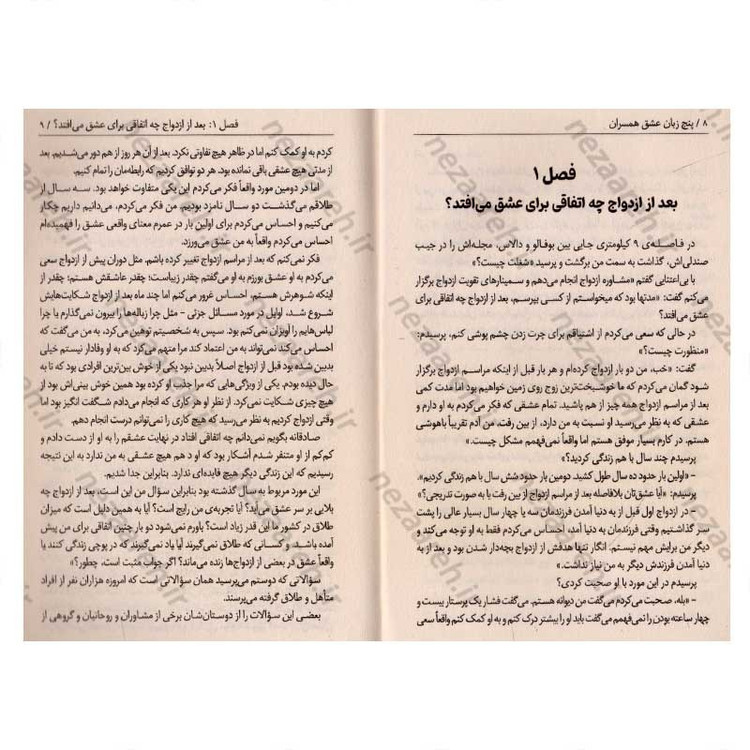 ۸ / پنج زبان عشق همسران
فصل ۱
بعد از ازدواج چه اتفاقی برای عشق می‌افتد؟
در فاصله‌ی ۹ کیلومتری جایی بین بوفالو و دالاس، مجله‌اش را در جیب
صندلی‌اش، گذاشت به سمت من برگشت و پرسید «شغلت چیست؟»
با بی‌اعتنایی گفتم «مشاوره ازدواج انجام می‌دهم و سمینارهای تقویت ازدواج برگزار
می‌کنم گفت: «مدتها بود که میخواستم از کسی بپرسم، بعد از ازدواج چه اتفاقی برای عشق
می‌افتد؟
در حالی که سعی می‌کردم از اشتیاقم برای چرت زدن چشم پوشی کنم، پرسیدم:
«منظورت چیست؟»
گفت: «خب، من دو بار ازدواج کرده‌ام و هر بار قبل از اینکه مراسم ازدواج برگزار
شود گمان می‌کردم که ما خوشبخت‌ترین زوج روی زمین خواهیم بود اما مدت کمی
بعد از مراسم ازدواج همه چیز از هم پاشید. تمام عشقی که فکر می‌کردم به او دارم و
عشقی که به نظر می‌رسید او نسبت به من دارد، از بین رفت، من آدم تقریباً باهوشی
هستم، در کارم بسیار موفق هستم اما واقعاً نمی‌فهمم مشکل چیست.»
پرسیدم چند سال با هم زندگی کردید؟»
- «اولین بار حدود ده سال طول کشید. دومین بار حدود شش سال با هم زندگی کردیم».
پرسیدم: «آیا عشق‌تان بلافاصله بعد از مراسم ازدواج از بین رفت یا به صورت تدریجی؟»
- در ازدواج اول قبل از به دنیا آمدن فرزندمان سه یا چهار سال بسیار عالی را پشت
سر گذاشتیم وقتی فرزندمان به دنیا آمد، احساس می‌کردم فقط به او توجه می‌کند و
دیگر من برایش مهم نیستم. انگار تنها هدفش از ازدواج بچه‌دار شدن بود و بعد از به
دنیا آمدن فرزندش دیگر به من نیاز نداشت.»
پرسیدم در این مورد با او صحبت کردی؟
- «بله، صحبت می‌کردم می‌گفت من دیوانه هستم. می‌گفت فشار یک پرستار بیست و
چهار ساعته بودن را نمی‌فهمم می‌گفت باید او را بیشتر درک کنم و به او کمک کنم واقعاً سعی
فصل ۱: بعد از ازدواج چه اتفاقی برای عشق می‌افتد؟ / ۹
کردم به او کمک کنم اما در ظاهر هیچ تفاوتی نکرد. بعد از آن هر روز از هم دور می‌شدیم. بعد
از مدتی هیچ عشقی باقی نمانده بود. هر دو توافق کردیم که رابطه‌مان را تمام کنیم.
اما در دومین مورد واقعاً فکر می‌کردم این یکی متفاوت خواهد بود. سه سال از
طلاقم می‌گذشت دو سال نامزد بودیم. من فکر می‌کردم، می‌دانیم داریم چکار
می‌کنیم و احساس می‌کردم برای اولین بار در عمرم معنای واقعی عشق را فهمیده‌ام
احساس می‌کردم واقعاً به من عشق می‌ورزد.
فکر نمی‌کنم که بعد از مراسم ازدواج تغییر کرده باشم. مثل دوران پیش از ازدواج سعی
می‌کردم به او عشق بورزم به او می‌گفتم چقدر زیباست؛ چقدر عاشقش هستم؛ چقدر از
اینکه شوهرش هستم، احساس غرور می‌کنم اما چند ماه بعد از ازدواج شکایت‌هایش
شروع شد، اوایل در مورد مسائل جزئی - مثل چرا زباله‌ها را بیرون نمی‌گذارم یا چرا
لباس‌هایم را آویزان نمی‌کنم بود. سپس به شخصیتم توهین می‌کرد، به من می‌گفت که
احساس می‌کند نمی‌تواند به من اعتماد کند مرا متهم می‌کرد که به او وفادار نیستم خیلی
بدبین شده بود قبل از ازدواج اصلاً بدبین نبود یکی از خوش بین‌ترین افرادی بود که تا به
حال دیده بودم. یکی از ویژگی‌هایی که مرا جذب او کرده بود همین خوش بینی‌اش بود از
هیچ چیزی شکایت نمی‌کرد. از نظر او هر کاری که انجام می‌دادم شگفت انگیز بود اما
وقتی ازدواج کردیم به نظر می‌رسید که هیچ کاری را نمی‌توانم درست انجام دهم.
صادقانه بگویم نمی‌دانم چه اتفاقی افتاد در نهایت عشقم را به او از دست دادم و
کم‌کم از او متنفر شدم آشکار بود که او هم هیچ عشقی به من ندارد به این نتیجه
رسیدیم که این زندگی دیگر هیچ فایده‌ای ندارد. بنابراین جدا شدیم.
این مورد مربوط به سال گذشته بود بنابراین سؤال من این است، بعد از ازدواج چه
بلایی بر سر عشق می‌آید؟ آیا تجربه‌ی من رایج است؟ آیا به همین دلیل است که میزان
طلاق در کشور ما این قدر زیاد است؟ باورم نمی‌شود دو بار چنین اتفاقی برای من پیش
آمده باشد. و کسانی که طلاق نمی‌گیرند آیا یاد نمی‌گیرند که در پوچی زندگی کنند یا
واقعاً عشق در بعضی از ازدواج‌ها زنده می‌ماند؟ اگر جواب مثبت است، چطور؟»
سؤالاتی که دوستم می‌پرسید همان سؤالاتی است که امروزه هزاران نفر از افراد
متأهل و طلاق گرفته می‌پرسند.
بعضی این سؤالات را از دوستان‌شان برخی از مشاوران و روحانیان و گروهی از
nezaafeh.ir